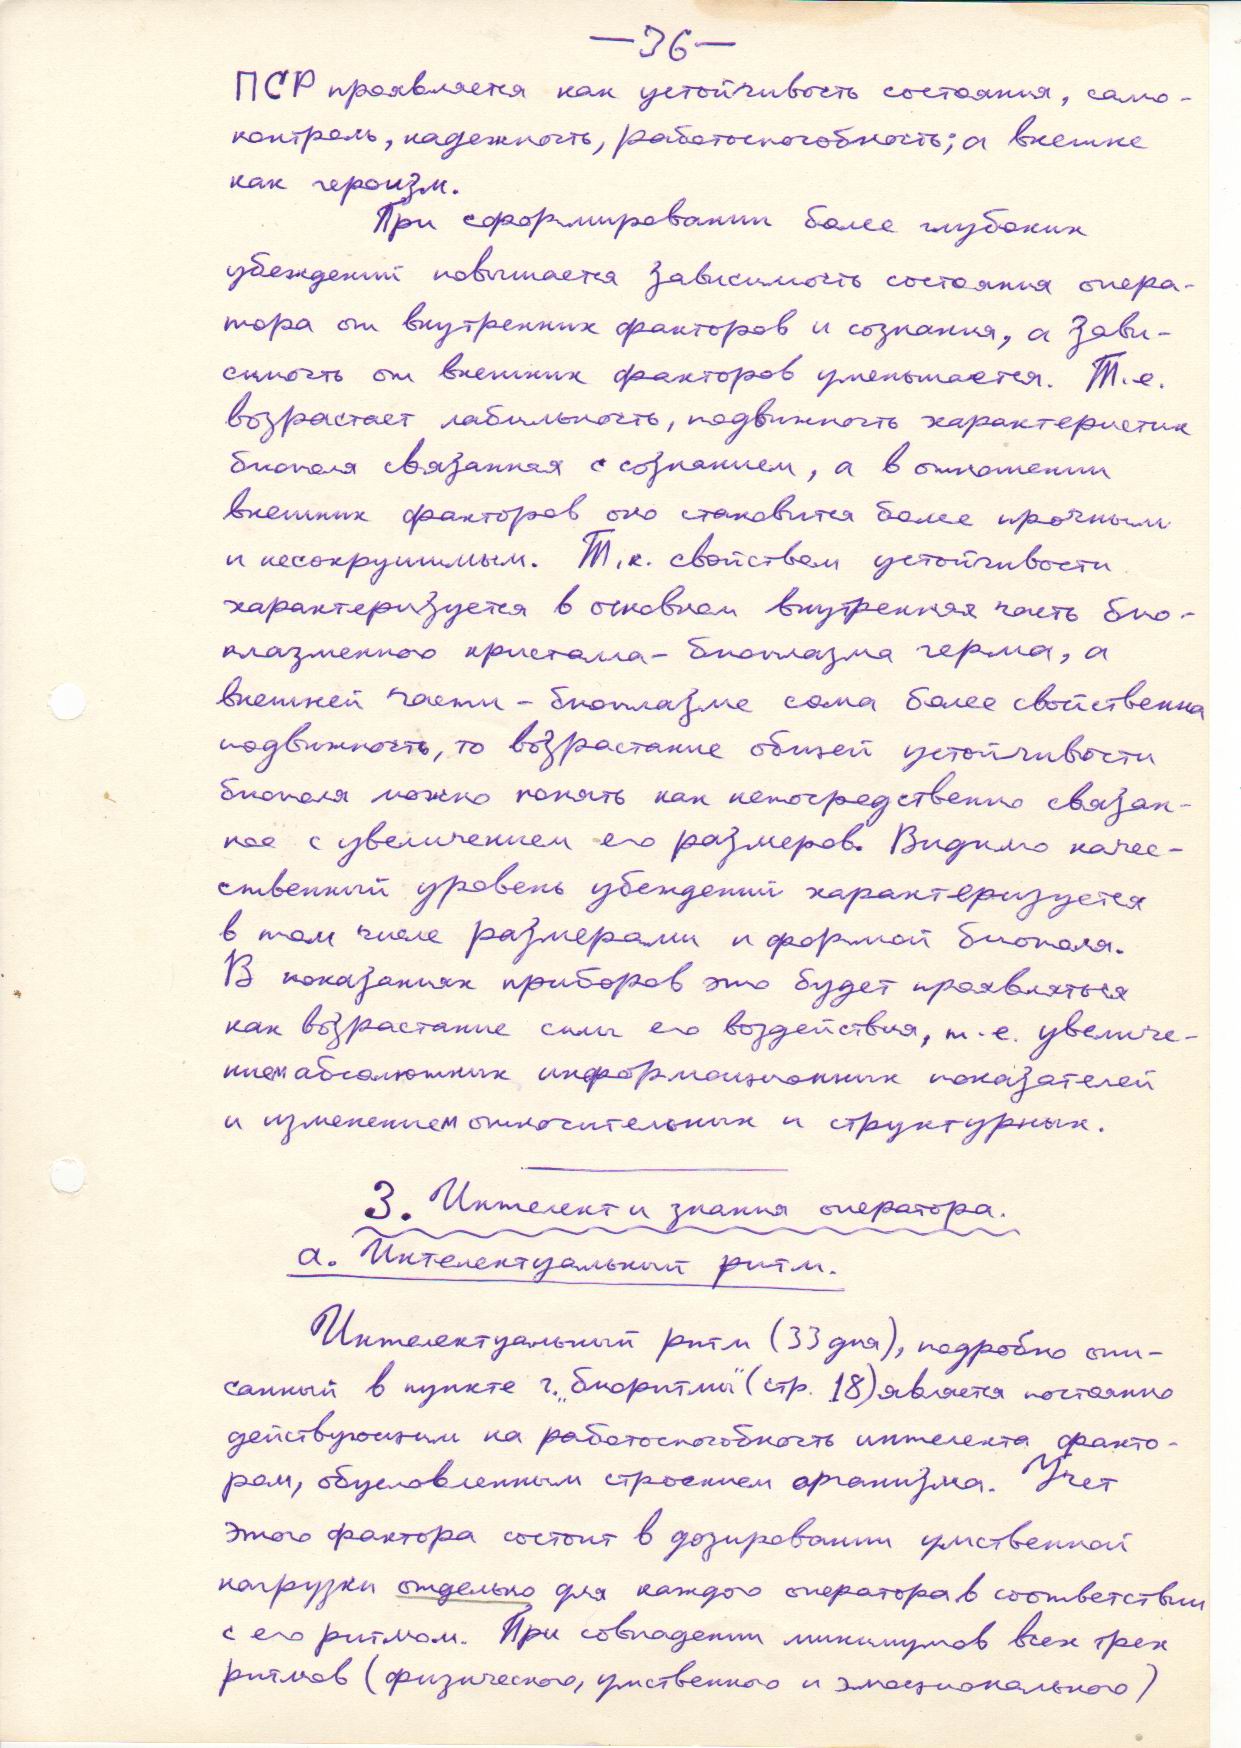 —36—
ПСР проявляется как устойчивость состояния, само-
контроль, надежность, работоспособность; а внешне
как героизм.
При сформировании более глубоких
убеждений повышается зависимость состояния опера-
тора от внутренних факторов и сознания, а зави-
симость от внешних факторов уменьшается. Т.е.
возрастает лабильность, подвижность характеристик
биополя связанная с сознанием, а в отношении
внешних факторов оно становится более прочным
и несокрушимым. Т.к. свойством устойчивости
характеризуется в основном внутренняя часть био-
плазменного кристалла – биоплазма герма, а
внешней части – биоплазме сома более свойственна
подвижность, то возрастание общей устойчивости
биополя можно понять как непосредственно связан-
ное с увеличением его размеров. Видимо качес-
ственный уровень убеждений характеризуется
в том числе размерами и формой биополя.
В показаниях приборов это будет проявляться
как возрастание силы его воздействия, т.е. увеличе-
нием абсолютных информационных показателей
и изменением относительных и структурных.
3. Интелект и знания оператора.
а. Интелектуальный ритм.
Интелектуальный ритм (33 дня), подробно опи-
санный в пункте г. „биоритмы" (стр. 18) является постоянно
действующим на работоспособность интелекта факто-
ром, обусловленным строением организма. Учет
этого фактора состоит в дозировании умственной
нагрузки отдельно для каждого оператора в соответствии
с его ритмом. При совпадении минимумов всех трех
ритмов (физического, умственного и эмоционального)